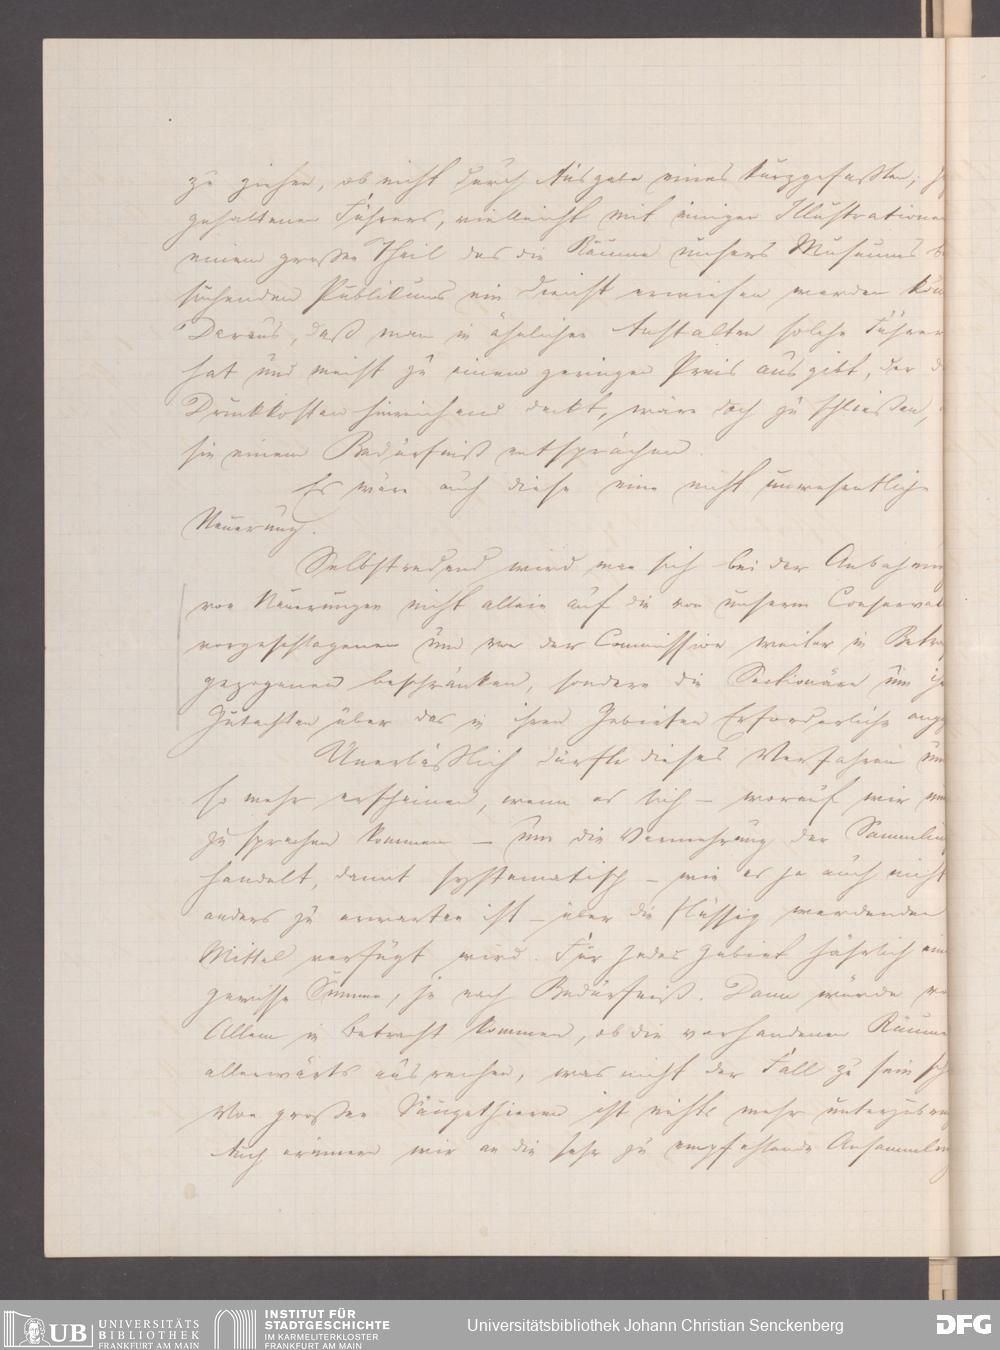 zu ziehen, ob nicht durch Ausgabe eines kurzgefaßten,
gehaltenen Führers, vielleicht mit einigen Illustratione
einem großen Theil des die Räume unsers Museums be
suchenden Publikums ein Dienst erwiesen werden kön
Daraus, daß man in ähnlichen Anstalten solche Führer
hat und meist zu einem geringen Preis ausgibt, der d
Druckkosten hinreichend deckt, wäre doch zu schließen,
sie einem Bedürfniß entsprächen.
Es wäre auch diese eine nicht unwesentliche
Neuerung.
Selbstredend wird man sich bei der Anbahnun
von Neuerungen nicht allein auf die von unserem Conservat
vorgeschlagenen und von der Commission weiter in Betra
gezogenen beschränken, sondern die Sectionäre um ih
Gutachten über das in ihren Gebieten Erforderliche ange
Unerläßlich dürfte dieses Verfahren um
so mehr erscheinen, wenn es sich – worauf wir nun
zu sprechen kommen – um die Vermehrung der Sammlun
handelt, damit systematisch – wie es ja auch nicht
anders zu erwarten ist – über die flüssig werdenden
Mittel verfügt wird. Für jedes Gebiet jährlich eine
gewisse Summe, je nach Bedürfniß. Dann würde vo
Allem in Betracht kommen, ob die vorhandenen Räume
allerwärts ausreichen, was nicht der Fall zu sein sch
Von großen Säugethieren ist nichts mehr unterzubring
Auch erinnern wir an die sehr zu empfehlende Ansammlung
UB UNIVERSITÄTS
BIBLIOTHEK
FRANKFURT AM MAIN
INSTITUT FÜR
STADTGESCHICHTE
IM KARMELITERKLOSTER
FRANKFURT AM MAIN
Universitätsbibliothek Johann Christian Senckenberg
DFG